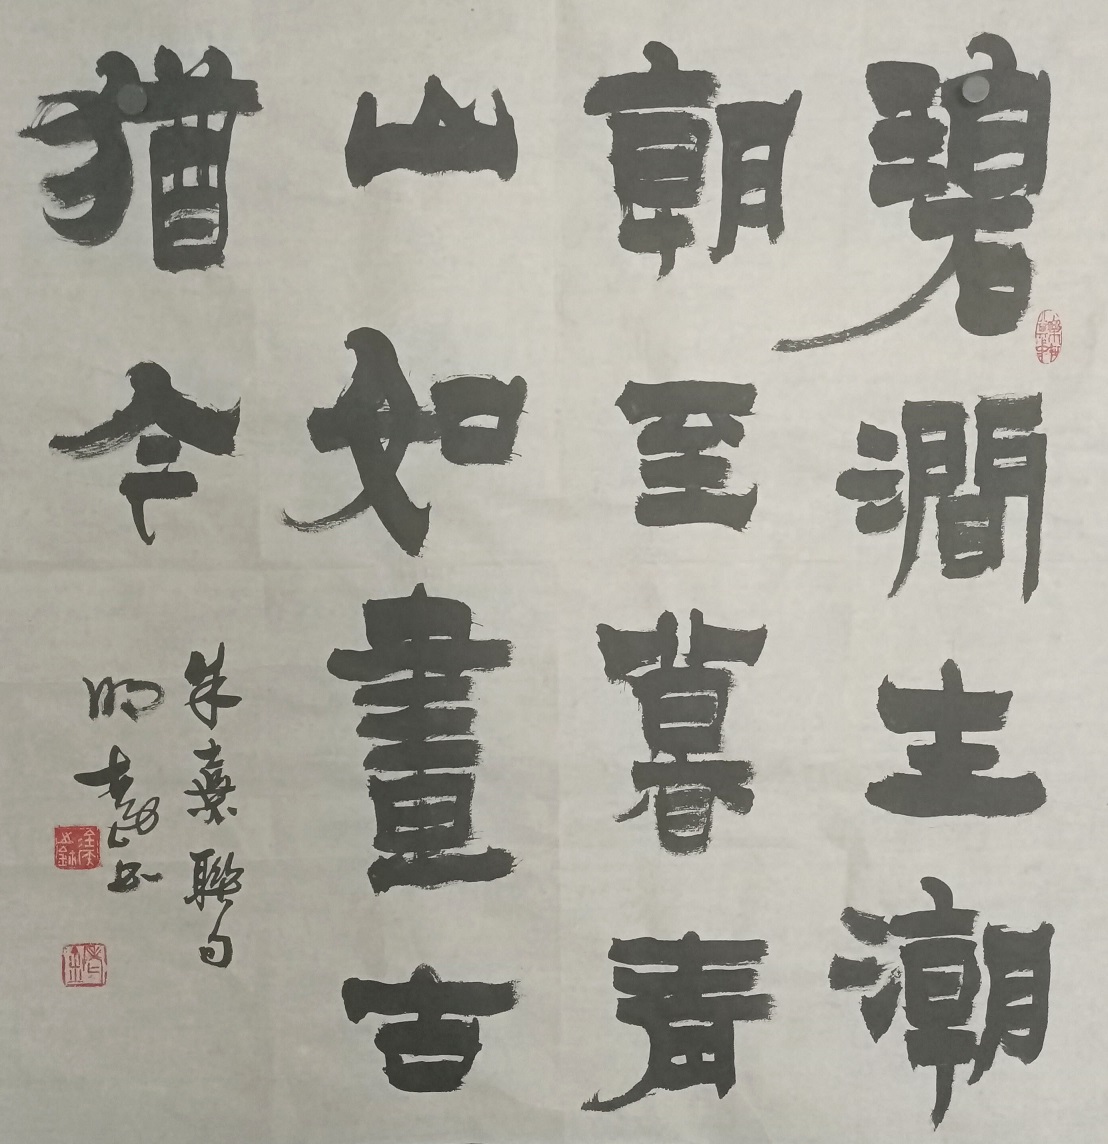 碧澗生潮
朝至暮青
山如畫古
猶今
朱熹聯句
明